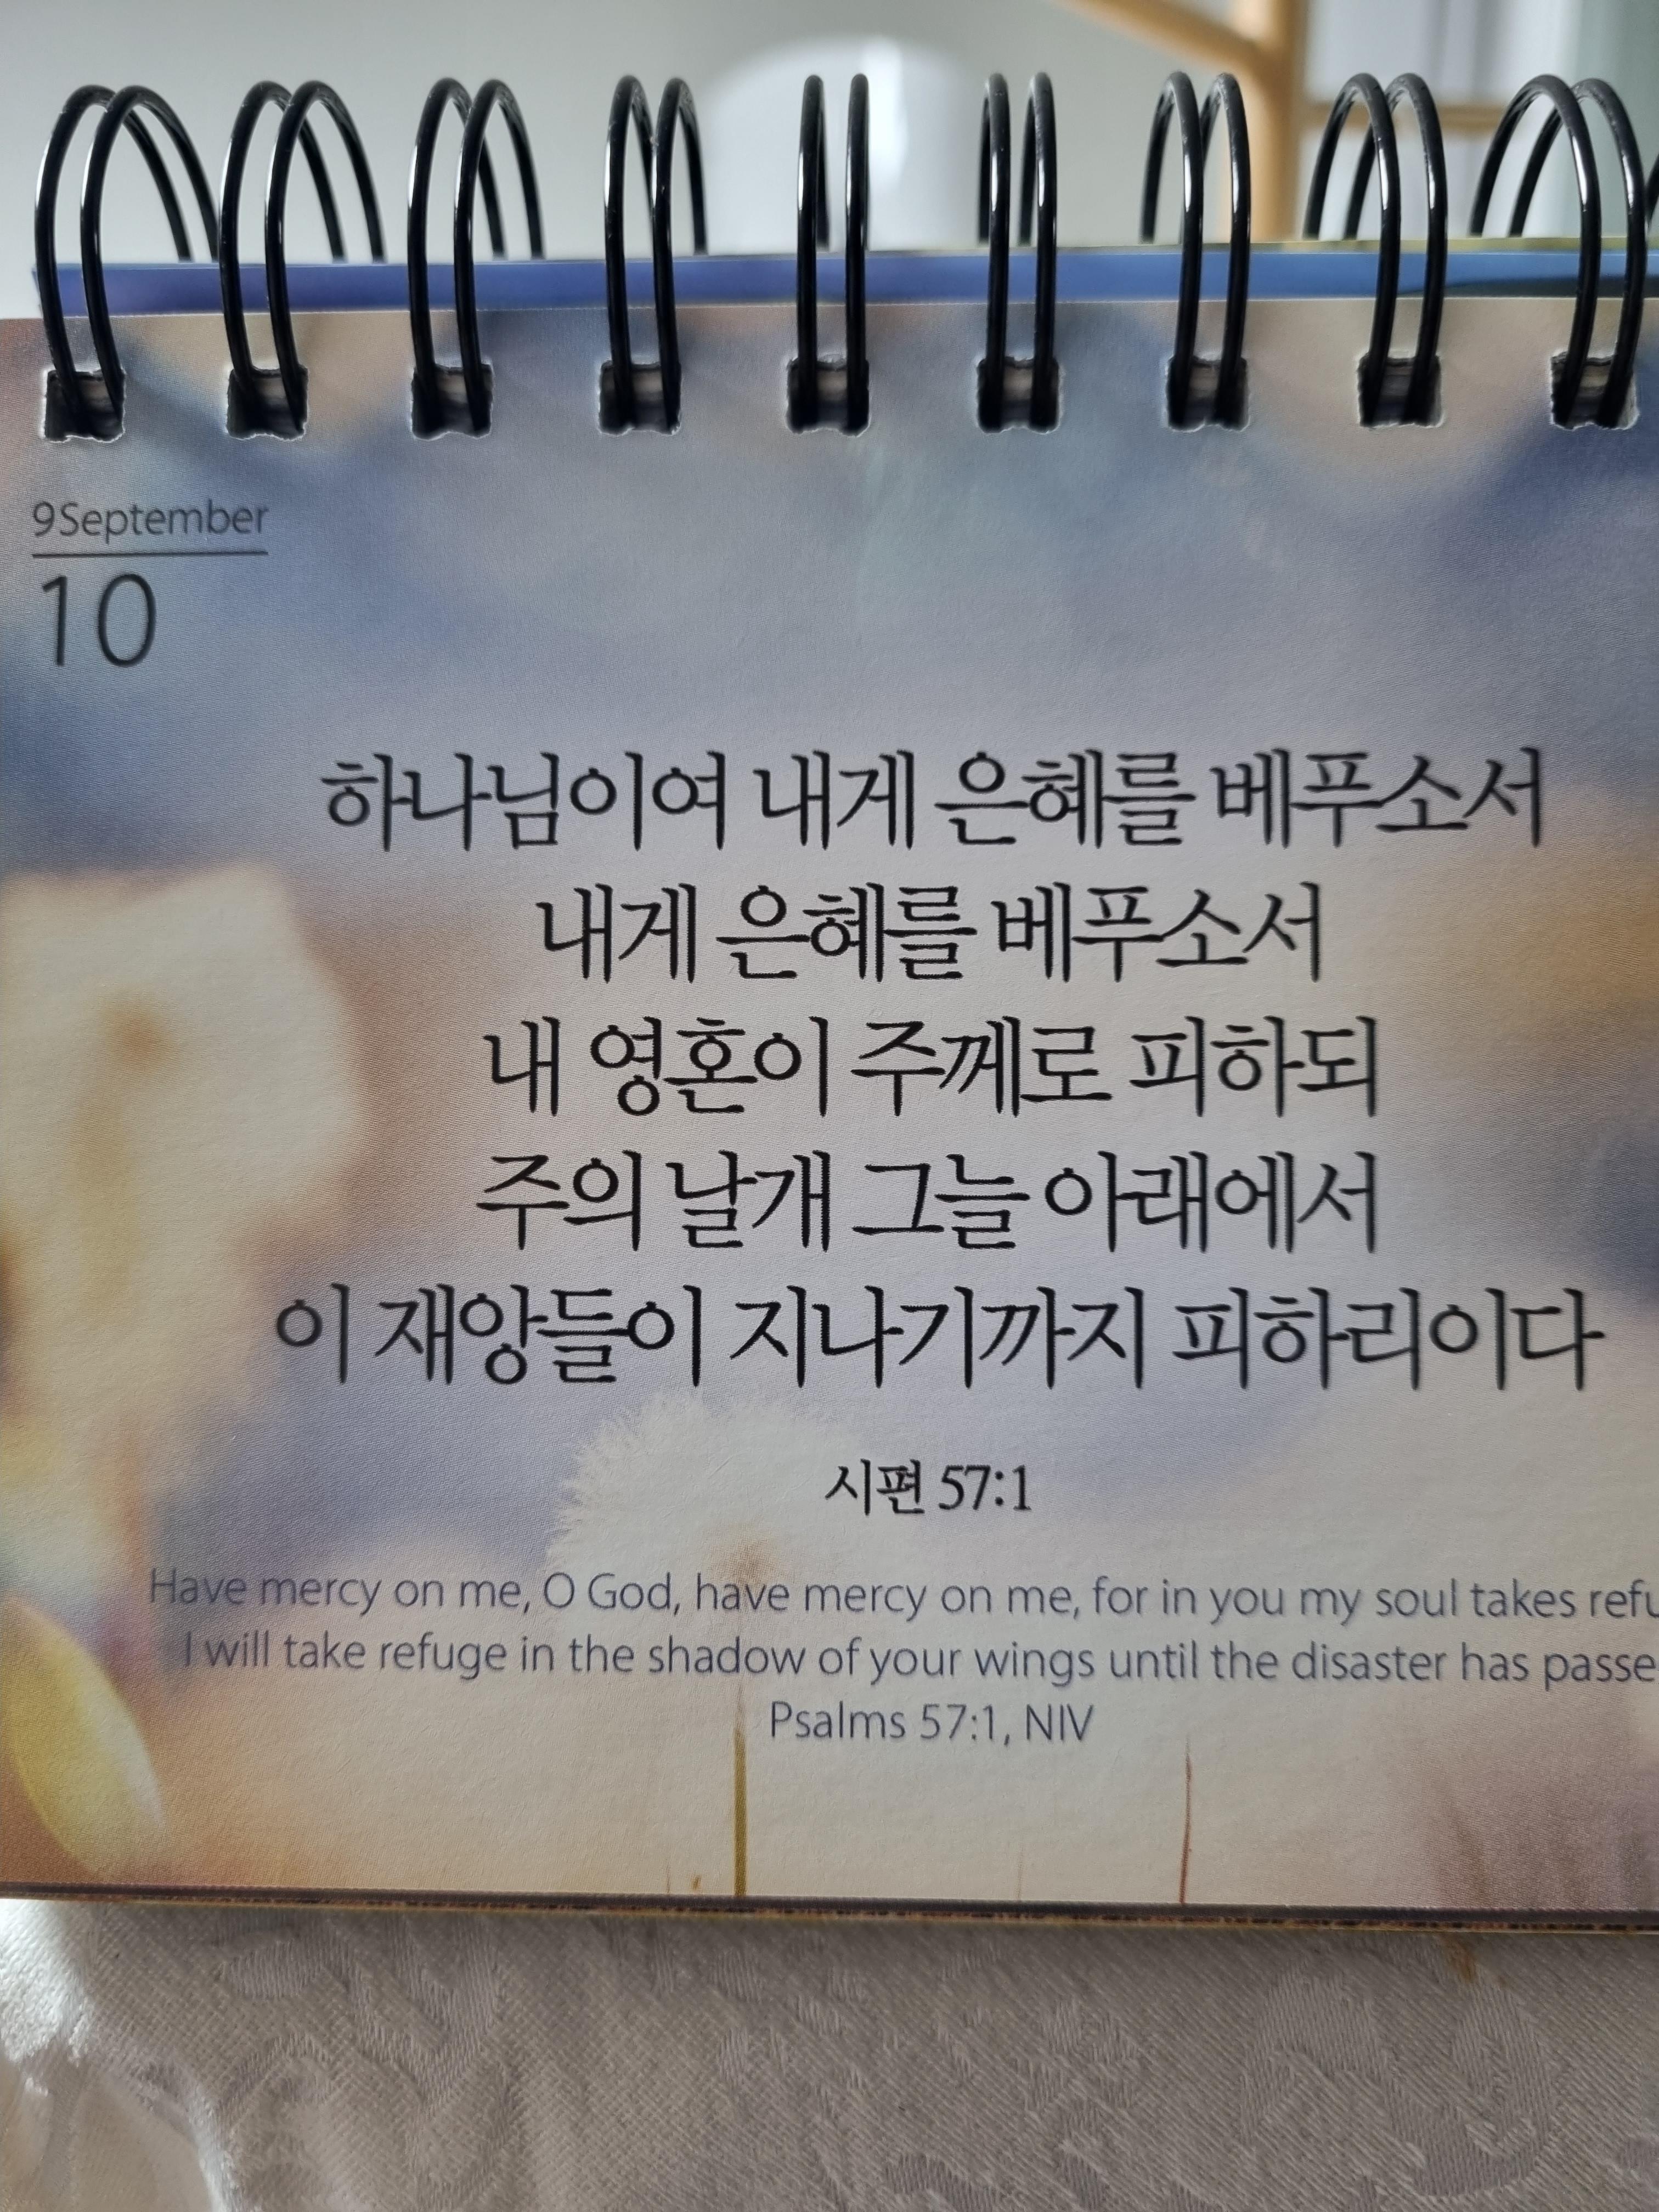 9September
10
하나님이여 내게 은혜를 베푸소서
내게 은혜를 베푸소서
내 영혼이 주께로 피하되
주의 날개 그늘 아래에서
이 재앙들이 지나기까지 피하리이다
시편 57:1
Have mercy on me, O God, have mercy on me, for in you my soul takes
I will take refuge in the shadow of your wings until the disaster has
Psalms 57:1, NIV